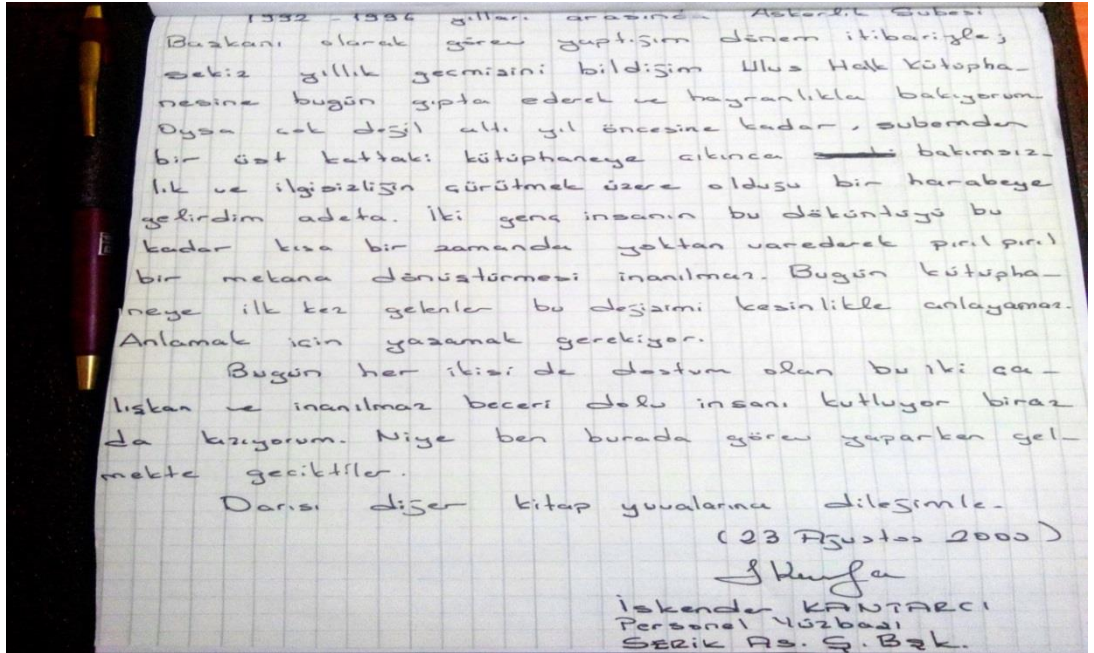 1992 - 1996 yılları arasında Askerlik Şubesi
Başkanı olarak görev yaptığım dönem itibariyle;
sekiz yıllık geçmişini bildiğim Ulus Halk Kütüpha-
nesine bugün gıpta ederek ve hayranlıkla bakıyorum
Oysa çok değil altı yıl öncesine kadar, şubemden
bir üst kattaki kütüphaneye çıkınca bakımsız-
lık ve ilgisizliğin çürütmek üzere olduğu bir harabeye
gelirdim adeta. İki genç insanın bu döküntüyü bu
kadar kısa bir zamanda yoktan varederek pırıl pırıl
bir mekana dönüştürmesi inanılmaz. Bugün kütüpha-
neye ilk kez gelenler bu değişimi kesinlikle anlayamaz.
Anlamak için yaşamak gerekiyor.
Bugün her ikisi de dostum olan bu iki ça-
lışkan ve inanılmaz beceri dolu insanı kutluyor biraz
da kızıyorum. Niye ben burada görev yaparken gel-
mekte geciktiler.
Darısı diğer kitap yuvalarına dileğimle.
(23 Ağustos 2000)
İskender KANTARCI
Personel Yüzbaşı
SERİK As. Ş. Bşk.